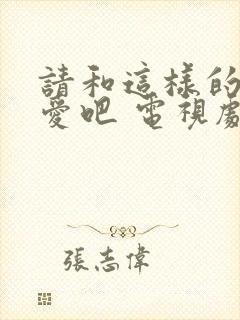 請和這樣的
愛吧 電視劇
張志偉